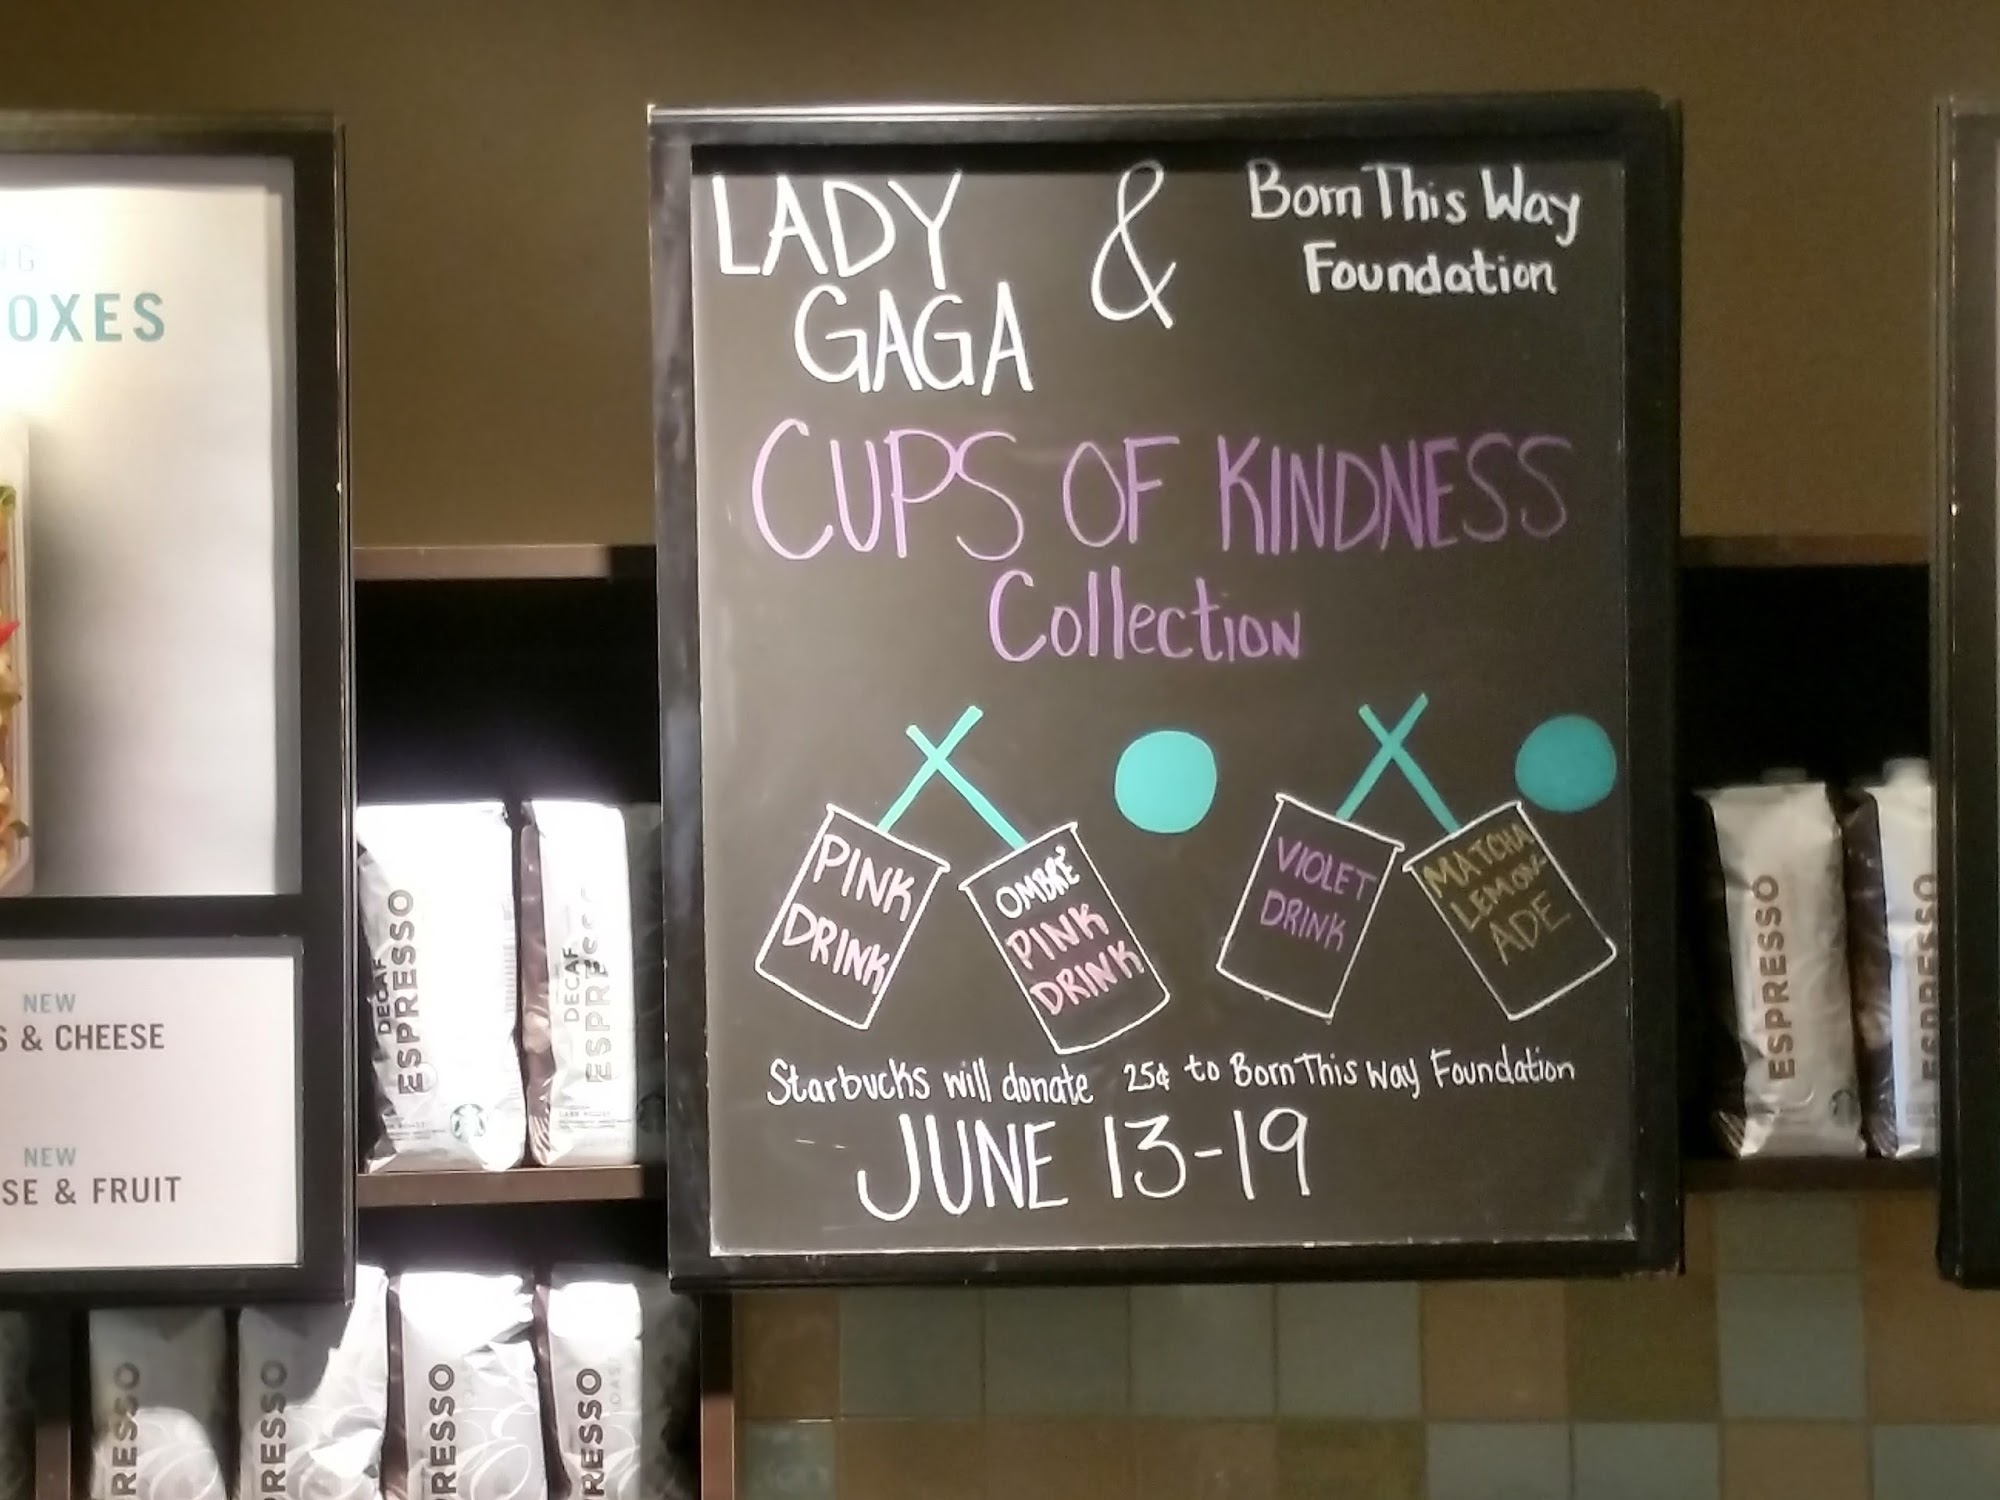 NG
OXES
NEW
S & CHEESE
NEW
SE & FRUIT
LADY
GAGA
&
Born This Way
Foundation
CUPS OF KINDNESS
Collection
PINK
DRINK
OMBRÉ
PINK
DRINK
VIOLET
DRINK
MATCHA
LEMON
ADE
Starbucks will donate 25¢ to Born This Way Foundation
JUNE 13-19
DECAF
ESPRESSO
DECAF
ESPRESSO
ESPRESSO
ESPRESSO
PRESSO
PRESSO
PRESSO
PRESSO